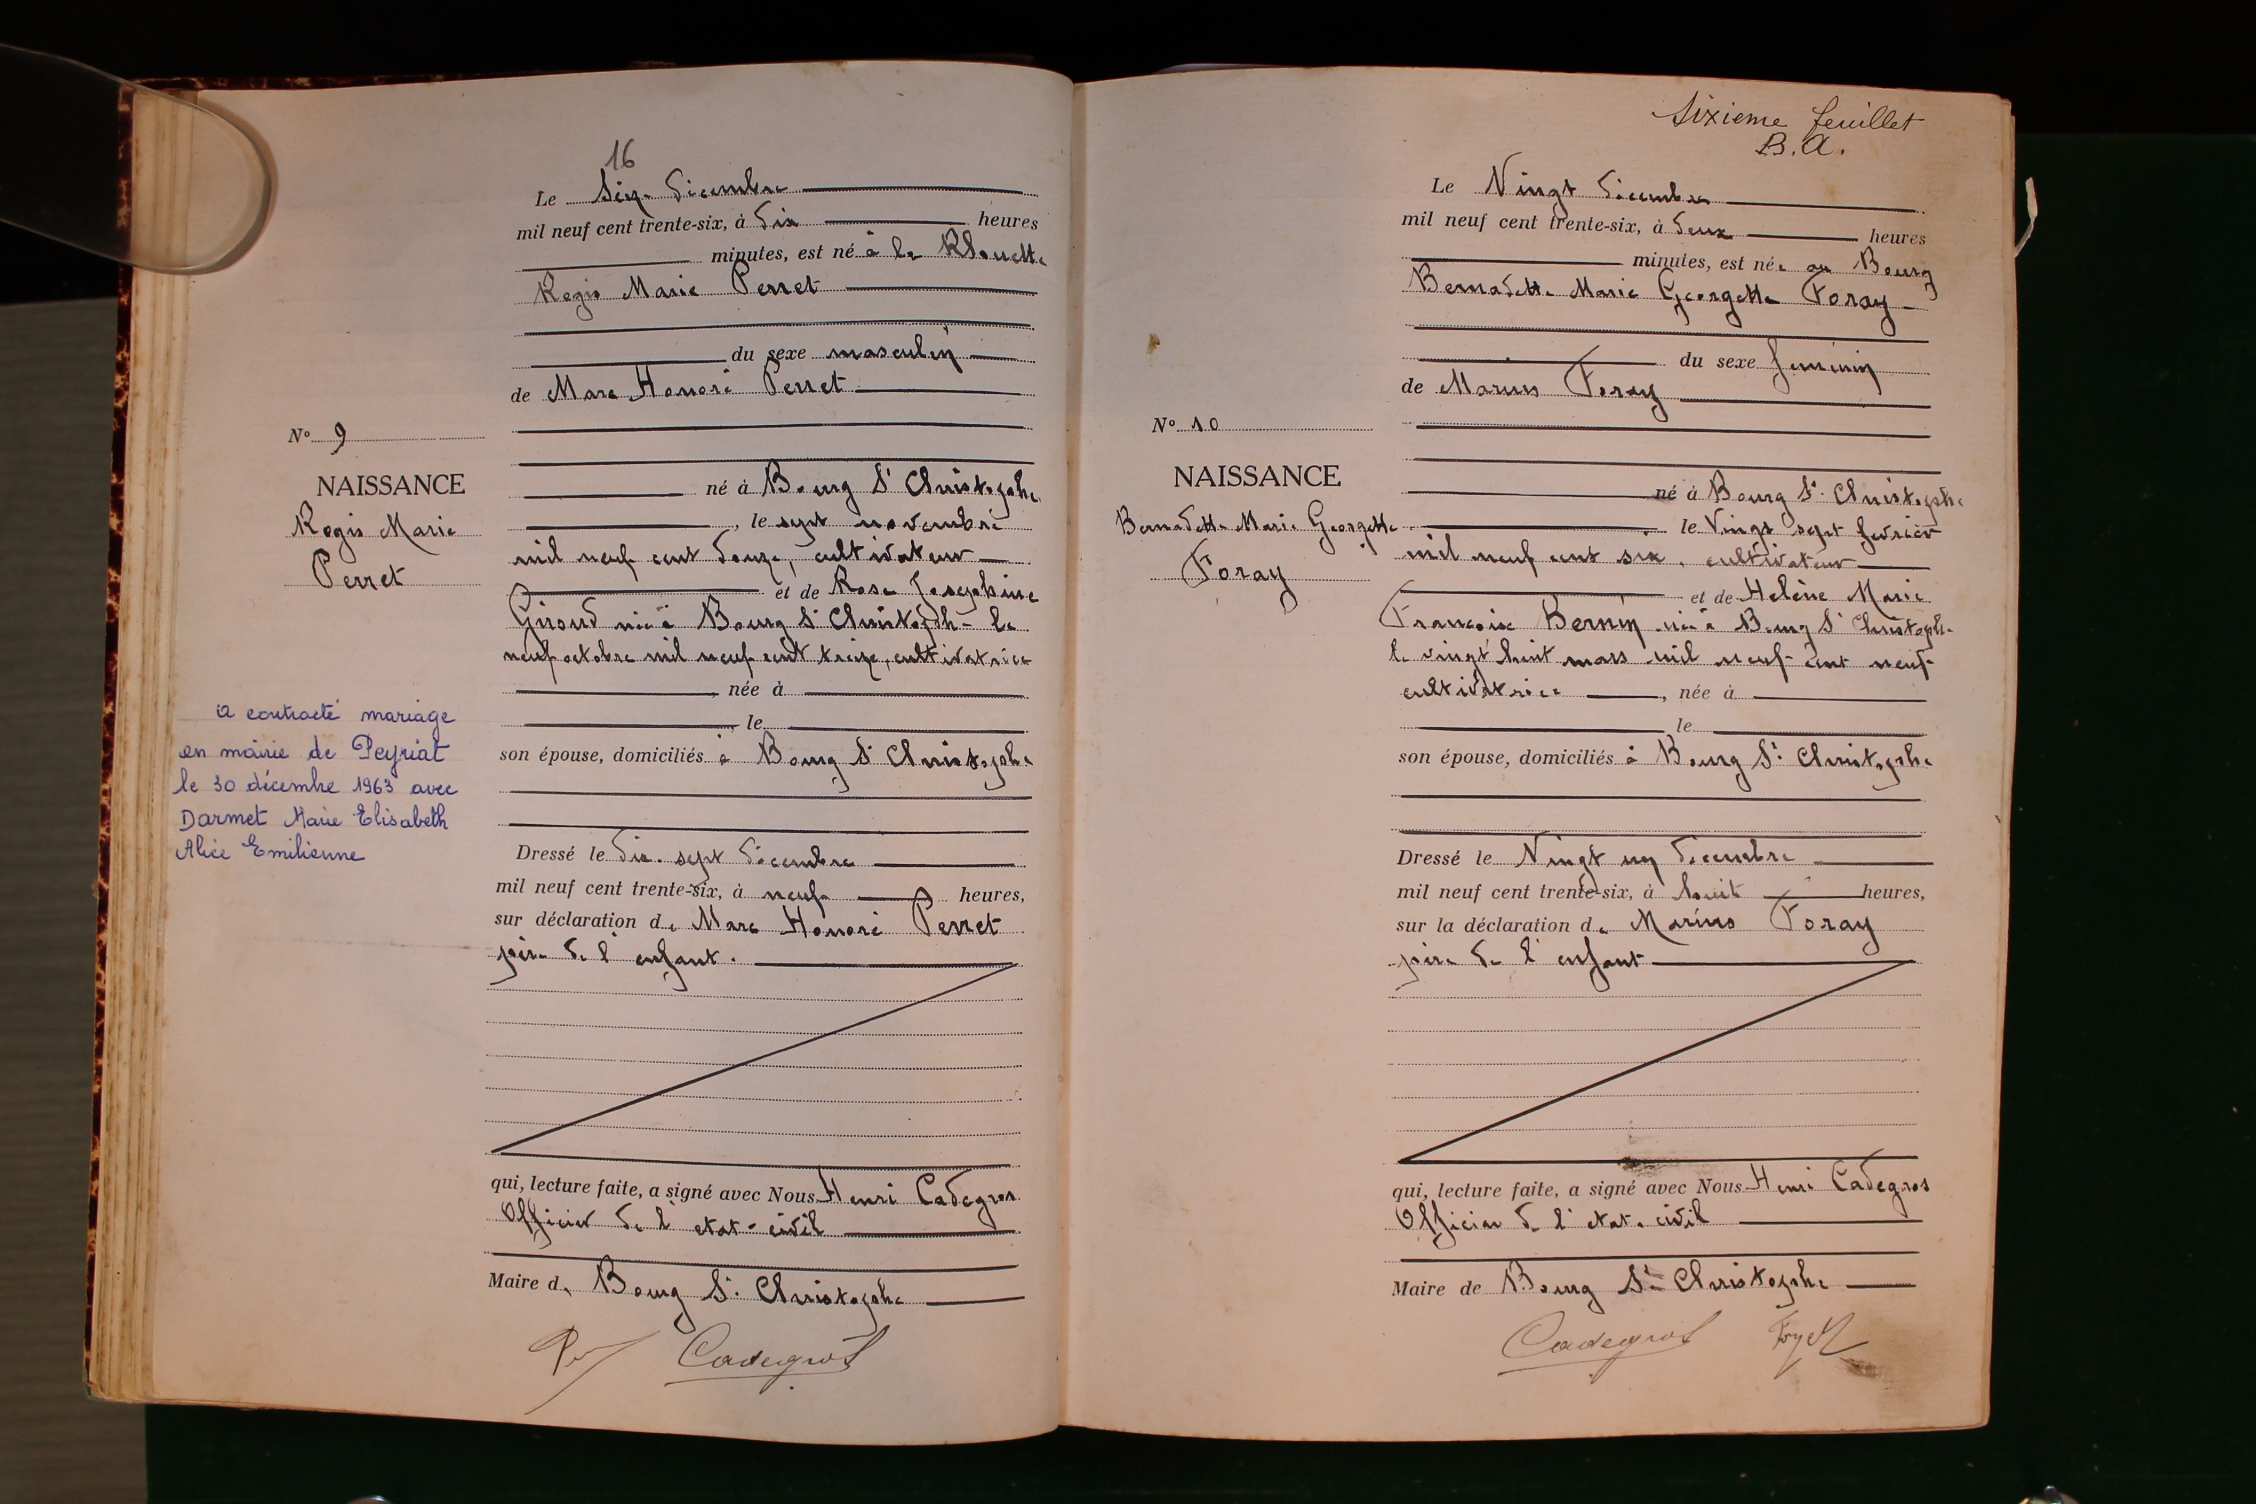 16
Le Seize décembre
mil neuf cent trente-six, à dix heures
minutes, est né à la
Regis Marie Perret
du sexe masculin
de Marc Honoré Perret
N° 9
NAISSANCE
Regis Marie
Perret
né à Bourg St Christophe
, le sept novembre
mil neuf cent douze, cultivateur
et de Rose Josephine
Giroud née à Bourg St Christophe le
neuf octobre mil neuf cent treize, cultivatrice
, née à
le
son épouse, domiciliés à Bourg St Christophe
a contracté mariage
en mairie de Peyriat
le 30 décembre 1963 avec
Darmet Marie Elisabeth
Alice Emilienne
Dressé le dix sept décembre
mil neuf cent trente-six, à neuf heures,
sur déclaration de Marc Honoré Perret
père de l'enfant.
qui, lecture faite, a signé avec Nous Henri Cadegros
Officier de l'etat-civil
Maire de Bourg St Christophe
Cadegros
Sixieme feuillet
B.A.
Le Vingt décembre
mil neuf cent trente-six, à deux heures
minutes, est née au Bourg
Bernadette Marie Georgette Foray
du sexe feminin
de Marius Foray
N° 10
NAISSANCE
Bernadette Marie Georgette
Foray
né à Bourg St Christophe
le Vingt sept fevrier
mil neuf cent six, cultivateur
et de Helène Marie
Francoise Bernin née à Bourg St Christophe
le vingt huit mars mil neuf cent neuf
cultivatrice , née à
le
son épouse, domiciliés à Bourg St Christophe
Dressé le Vingt un décembre
mil neuf cent trente-six, à huit heures,
sur la déclaration de Marius Foray
père de l'enfant
qui, lecture faite, a signé avec Nous Henri Cadegros
Officier de l'etat-civil
Maire de Bourg St Christophe
Cadegros